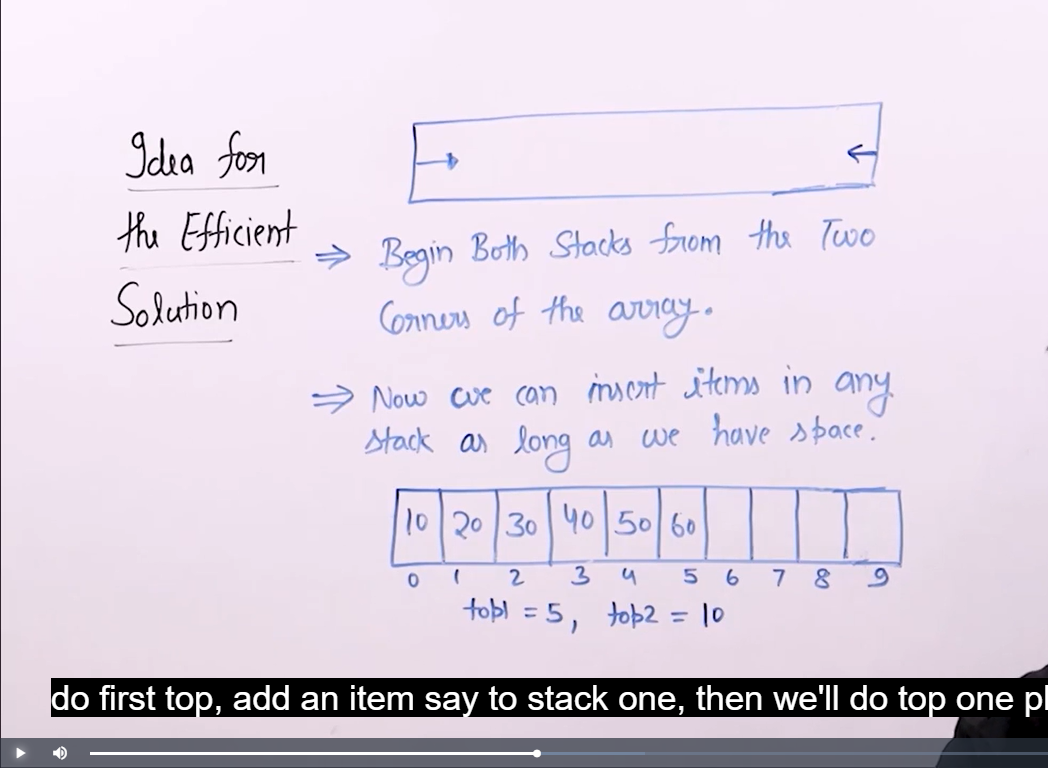 Idea for
the Efficient
Solution
⇒ Begin Both Stacks from the Two
Corners of the array.
⇒ Now we can insert items in any
stack as long as we have space.
10 20 30 40 50 60
0 1 2 3 4 5 6 7 8 9
top1 = 5, top2 = 10
do first top, add an item say to stack one, then we'll do top one pl